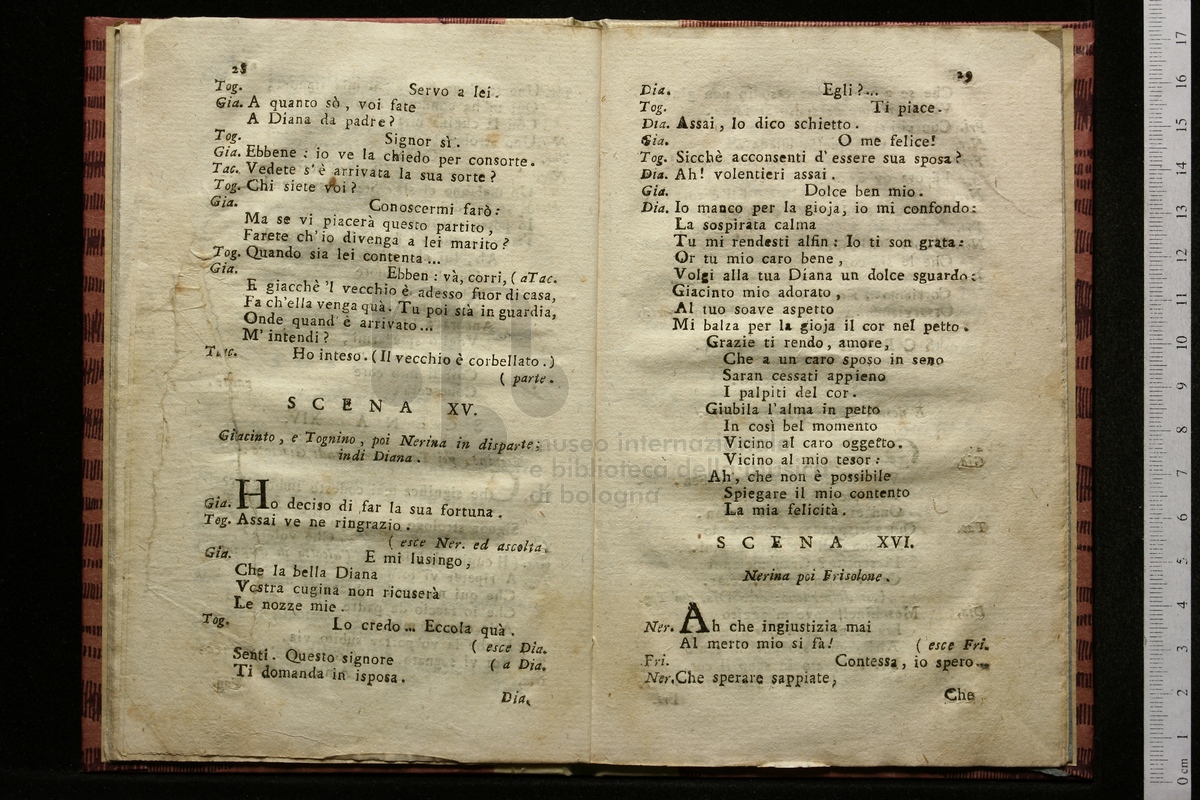 28
Tog. Servo a lei.
Gia. A quanto sò, voi fate
A Diana da padre?
Tog. Signor sì.
Gia. Ebbene: io ve la chiedo per consorte.
Tac. Vedete s'è arrivata la sua sorte?
Tog. Chi siete voi?
Gia. Conoscermi farò:
Ma se vi piacerà questo partito,
Farete ch'io divenga a lei marito?
Tog. Quando sia lei contenta...
Gia. Ebben: và, corri, (a Tac.
E giacchè 'l vecchio è adesso fuor di casa,
Fa ch'ella venga quà. Tu poi stà in guardia,
Onde quand' è arrivato...
M' intendi?
Tac. Ho inteso. (Il vecchio è corbellato.)
( parte.
SCENA XV.
Giacinto, e Tognino, poi Nerina in disparte;
indi Diana.
Gia. Ho deciso di far la sua fortuna.
Tog. Assai ve ne ringrazio.
( esce Ner. ed ascolta.
Gia. E mi lusingo,
Che la bella Diana
Vostra cugina non ricuserà
Le nozze mie.
Tog. Lo credo... Eccola quà.
( esce Dia.
Senti. Questo signore ( a Dia.
Ti domanda in isposa.
Dia.
29
Dia. Egli?...
Tog. Ti piace.
Dia. Assai, lo dico schietto.
Gia. O me felice!
Tog. Sicchè acconsenti d' essere sua sposa?
Dia. Ah! volentieri assai.
Gia. Dolce ben mio.
Dia. Io manco per la gioja, io mi confondo:
La sospirata calma
Tu mi rendesti alfin: Io ti son grata:
Or tu mio caro bene,
Volgi alla tua Diana un dolce sguardo:
Giacinto mio adorato,
Al tuo soave aspetto
Mi balza per la gioja il cor nel petto.
Grazie ti rendo, amore,
Che a un caro sposo in seno
Saran cessati appieno
I palpiti del cor.
Giubila l'alma in petto
In così bel momento
Vicino al caro oggetto.
Vicino al mio tesor:
Ah, che non è possibile
Spiegare il mio contento
La mia felicità.
SCENA XVI.
Nerina poi Frisolone.
Ner. Ah che ingiustizia mai
Al merto mio si fà! ( esce Fri.
Fri. Contessa, io spero...
Ner. Che sperare sappiate,
Che
museo internazionale
e biblioteca della musica
di bologna
0 cm 1 2 3 4 5 6 7 8 9 10 11 12 13 14 15 16 17